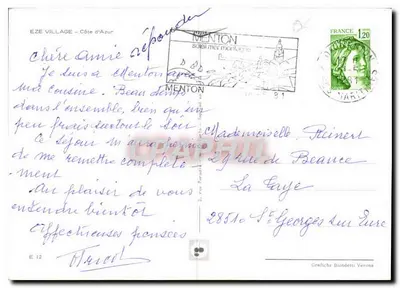 EZE VILLAGE - Côte d'Azur
répondu
Chère Amie
Je suis à Menton avec
ma cousine. Beau temps
dans l'ensemble, bien qu'un
peu frais surtout le soir
Ce séjour m'a permis
de me remettre complète
ment
Au plaisir de vous
entendre bientôt
Affectueuses pensées
E 12
MENTON
MENTON
FRANCE
1,20
Mademoiselle Reinert
29 rue de Beauce
La Taye
28310 St Georges sur Eure